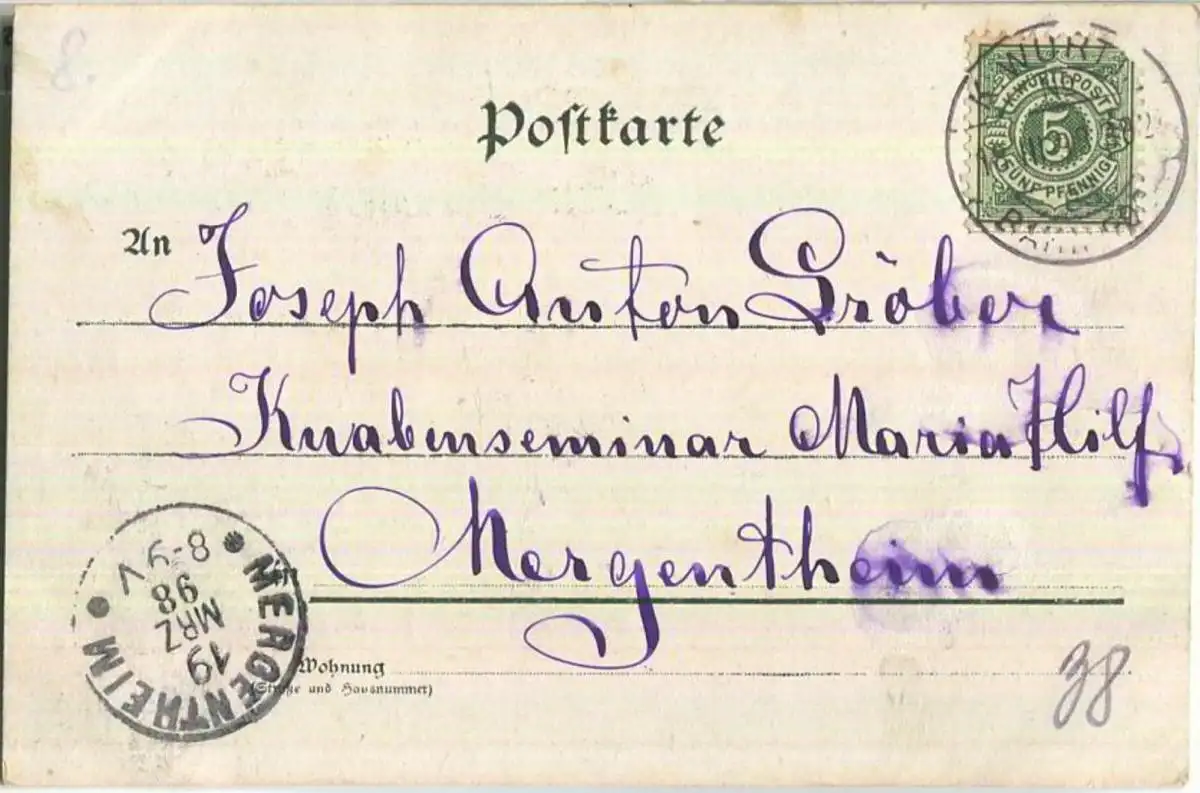 8.
Postkarte
K. WÜRTT. POST
5
FÜNF PFENNIG
K. WÜRT
An Joseph Anton Gröber
Knabenseminar Maria Hilf
Mergentheim
MERGENTHEIM
19
MRZ
98
8-9 V
Wohnung
(Straße und Hausnummer)
38